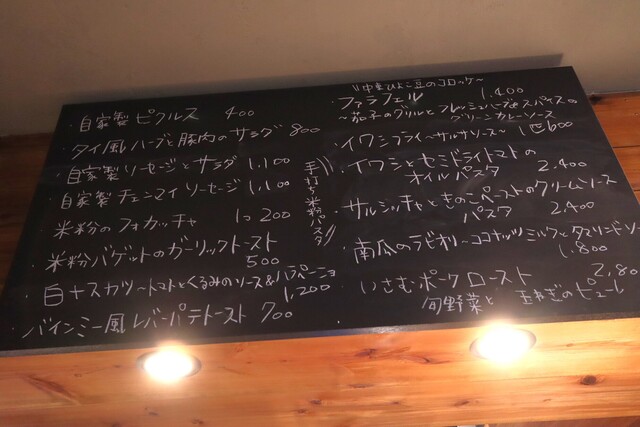 ・自家製ピクルス 400
・タイ風ハーブと豚肉のサラダ 800
・自家製ソーセージとサラダ 1,100
・自家製チェンマイソーセージ 1,100
・米粉のフォカッチャ 1コ 200
・米粉バゲットのガーリックトースト
500
・白ナスカツ〜トマトとくるみのソース&ハラペーニョ
1,200
・バインミー風レバーパテトースト 700
手打ち米粉パスタ
〜中東ひよこ豆のコロッケ〜
・ファラフェル 1,400
〜茄子のグリルとフレッシュハーブ&スパイスの
グリーンカレーソース
・イワシフライ〜サルサソース〜 1匹600
・イワシとセミドライトマトの
オイルパスタ 2,400
・サルシッチャときのこペーストのクリームソース
パスタ 2,400
・南瓜のラビオリ〜ココナッツミルクとタマリンドソー
1,800
・いさむポークロースト 2,80
旬野菜と玉ねぎのピューレ